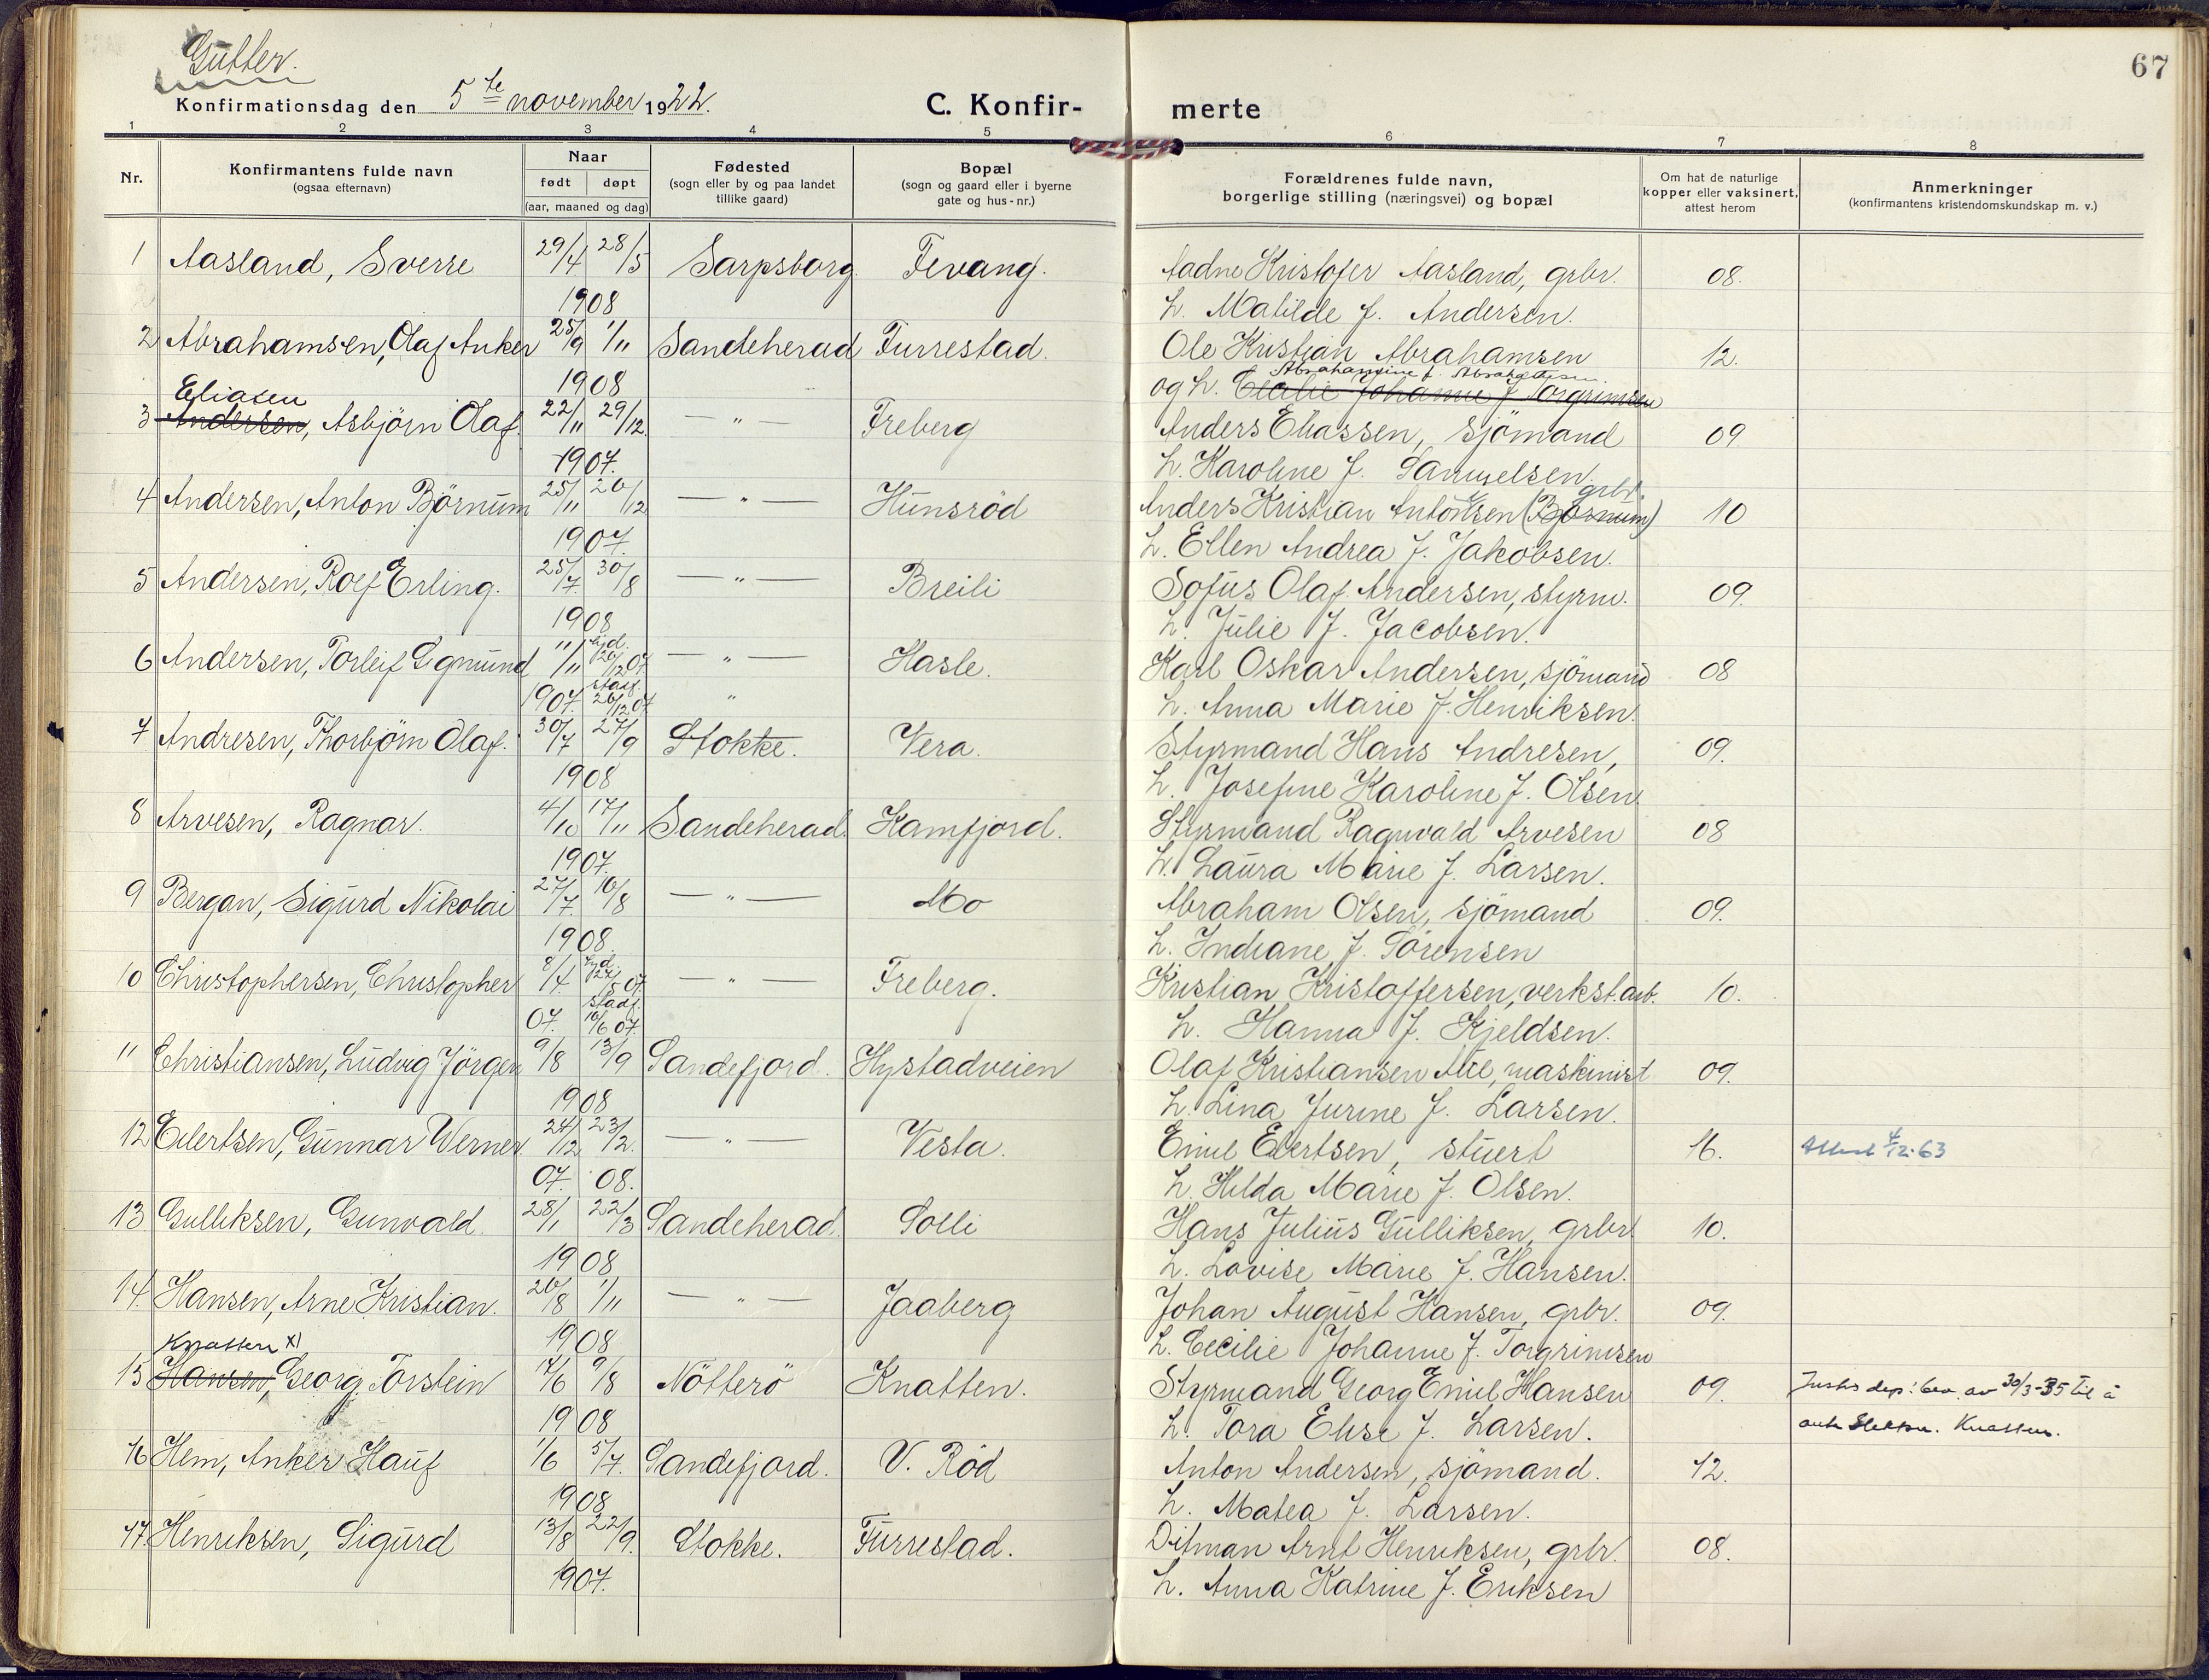 Gutter.
67
Konfirmationsdag den 5te november 1922.
C. Konfir-
merte
1 2 3 4 5 6 7 8
Nr.
Konfirmantens fulde navn
(ogsaa efternavn)
Naar
født døpt
(aar, maaned og dag)
Fødested
(sogn eller by og paa landet
tillike gaard)
Bopæl
(sogn og gaard eller i byerne
gate og hus-nr.)
Forældrenes fulde navn,
borgerlige stilling (næringsvei) og bopæl
Om hat de naturlige
kopper eller vaksinert,
attest herom
Anmerkninger
(konfirmantens kristendomskundskap m. v.)
1 Aasland, Sverre 29/4 28/5 Sarpsborg. Fevang. Aadne Kristofer Aasland, grbr. 08.
1908 h. Matilde f. Andersen.
2 Abrahamsen, Olaf Anker 25/9 1/11 Sandeherad Furrestad. Ole Kristian Abrahamsen 12.
Abrahamine f. Abrahamsen
1908 og h. Cecilie Johanne f Torgrimsen
Eliasen
3 Andersen, Asbjörn Olaf. 22/11 29/12. — " — Freberg Anders Eliassen, sjömand 09
1907. h. Karoline f. Samuelsen.
grbr.
4 Andersen, Anton Börnum 25/11 26/12 — " — Hunsröd Anders Kristian Antonsen (Börnum) 10
1907. h. Ellen Andrea f. Jakobsen.
5 Andersen, Rolf Erling. 25/7. 30/8 — " — Breili Sofus Olaf Andersen, styrm. 09.
1908 h. Julie f. Jacobsen.
6 Andersen, Torleif Sigmund 11/11 hjd. 26/12 07 — " — Hasle. Karl Oskar Andersen, sjömand 08
1907. stadf. 26/12 07 " h. Anna Marie f. Henriksen.
7 Andresen, Thorbjörn Olaf. 30/7 27/9 Stokke. Vera. Styrmand Hans Andresen, 09.
1908 h. Josefine Karoline f. Olsen
8 Arvesen, Ragnar. 4/10 17/11 Sandeherad. Kamfjord. Styrmand Ragnvald Arvesen 08
1907. h. Laura Marie f. Larsen.
9 Bergan, Sigurd Nikolai 27/7. 16/8 — " — Mo Abraham Olsen, sjömand 09.
1908. h. Indiane f. Sörensen
10 Christophersen, Christopher 8/4 hjd. 27/5 07. — " — Freberg. Kristian Kristoffersen, verkst.arb. 10.
07. stadf. 16/6 07. h. Hanna f. Kjeldsen.
11 Christiansen, Ludvig Jörgen 9/8 13/9 Sandefjord. Hystadveien Olaf Kristiansen, maskinist 09.
1908 h. Lina Jurine f. Larsen.
12 Eilertsen, Gunnar Werner 24/12 23/2. — " — Vesta. Emil Eilertsen, stuert 16. Attest 4/12-63
07. 08. h. Hilda Marie f. Olsen.
13 Gulliksen, Gunvald. 28/1 22/3 Sandeherad. Solli Hans Julius Gulliksen, grbr. 10.
1908 h. Lovise Marie f. Hansen.
14. Hansen, Arne Kristian. 26/8 1/11 — " — Jaaberg Johan August Hansen, grbr. 09.
1908 h. Cecilie Johanne f. Torgrimsen
Knatten x)
15 Hansen, Georg Torstein 17/6 9/8 Nötterö Knatten. Styrmand Georg Emil Hansen 09. Justis dep: bev. av 30/3-35 til å
1908 h. Tora Elise f. Larsen. Knatten.
16 Hem, Anker Hauf 1/6 5/7. Sandefjord. V. Röd Anton Andersen, sjömand. 12.
1908 h. Matea f. Larsen.
17. Henriksen, Sigurd 13/8 22/9. Stokke. Furrestad. Ditman Arnt Henriksen, grbr. 08.
1907. h. Anna Katrine f. Eriksen